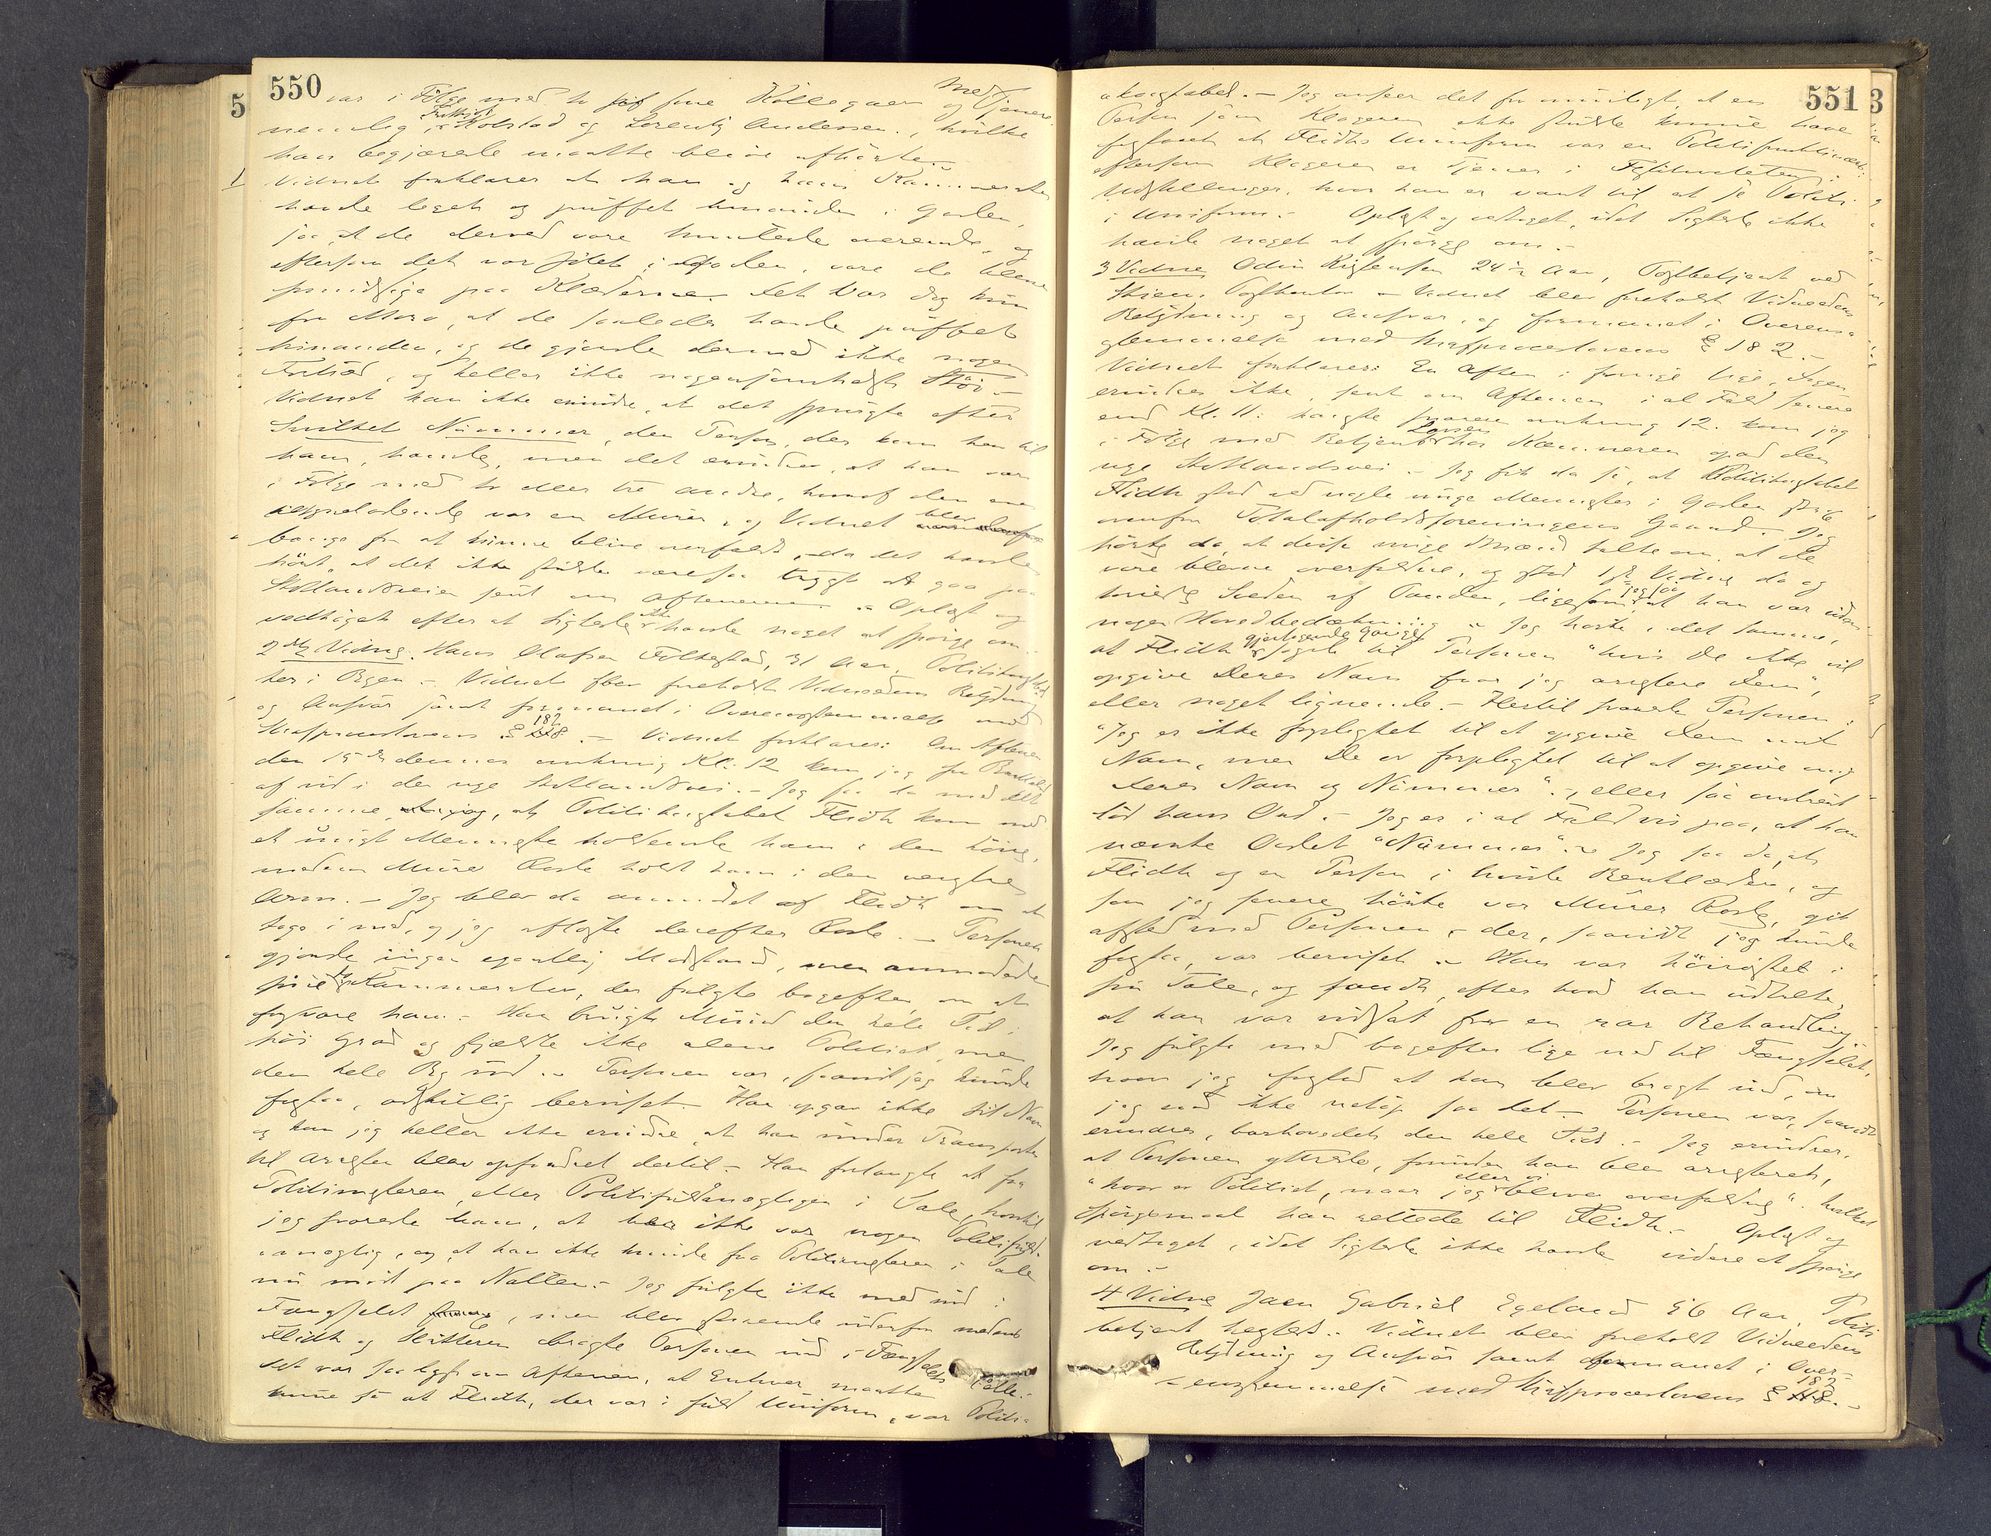 550
var i Følge med to af sine Kollegaer og Tjenere
nemlig Holstad og Lorentz Andersen. hvilke
han begjærede maatte blive afhørte.-
Vidnet forklarer at han og hans Kammerater
havde leget og puffet hinanden i Gaden,
saa at de derved vare hvinende og
eftersom det var i Gaden, vare de blevne
paa Klæderne. Det var dog kun
fra Moro, at de saaledes havde puffet
hinanden, og de gjorde dermed ikke nogen
Fortræd, og heller ikke nogensomhelst Støi.-
Vidnet kan ikke erindre, at det spurgte efter
hvilket Nummer, den Person, der kom hen til
ham, havde, men det erindrer, at han var
i Følge med to eller tre andre, hvoraf den ene
var en Murer, og Vidnet blev
bange for at kunne blive overfaldt, da det havde
hørt, at det ikke skulde være saa trygt at gaa paa
Stollandsveien sent om Aftenerne. - Oplæst og
vedtaget efter at Sigtede ikke havde noget at spørge om.
2det Vidne. Hans Olafsen Folkestad, 31 Aar, Politikonstabel
her i Byen. - Vidnet blev foreholdt Vidneedens Betydning
og Ansvar samt formanet i Overensstemmelse med
Strafproceslovens § 182. - Vidnet forklarer: Om Aftenen
den 15de dennes omkring Kl. 12 kom jeg fra
af ind i den nye Stollandsvei. - Jeg saa da med det
samme, at Politikonstabel Flidh kom med
et ungt Menneske holdende ham i den høire,
medens Murer Roste holdt ham i den venstre
Arm. - Jeg blev da anmodet af Flidh om at
tage i med, og jeg afløste derefter Roste. - Personen
gjorde ingen egentlig Modstand, men anmodede
sine to Kammerater, der fulgte bagefter, om at
forsvare ham. - Han brugte Mund den hele Tid i
høi Grad og skjældte ikke alene Politiet, men
den hele By ud. - Personen var, saavidt jeg kunde
forstaa, adskillig beruset. Han opgav ikke sit Navn
og kan jeg heller ikke erindre, at han under Transporten
til Arresten blev opfordret dertil. - Han forlangte at faa
Politimesteren eller Politifuldmægtigen i Tale, hvortil
jeg svarede ham, at her ikke var nogen Politifuld-
mægtig, og at han ikke kunde faa Politimesteren i Tale
nu midt paa Natten. - Jeg fulgte ikke med ind i
Fængslet, men blev staaende udenfor medens
Flidh og Slutteren bragte Personen ind i Fængslets Celle.-
Det var saa lyst om Aftenen, at Enhver maatte
kunne se at Flidh, der var i fuld Uniform, var Politi-
551
konstabel. - Jeg anser det for umuligt, at en
Person som Klageren ikke skulde kunne have
forstaaet at Flidhs Uniform var en Politifunktionærs.
eftersom Klageren er Tjener i
Udstillinger, hvor han er vant til at se Politi
i Uniform. - Oplæst og vedtaget, idet Sigtede ikke
havde noget at spørge om.-
3 Vidne Odin Kristensen 24 1/2 Aar, Postbetjent ved
Skiens Postkontor - Vidnet blev foreholdt Vidneedens
Betydning og Ansvar, og formanet i Overens-
stemmelse med Strafproceslovens § 182.-
Vidnet forklarer: En Aften i forrige Uge, Dagen
erindres ikke, sent om Aftenen i al Fald senere
end Kl. 11: havgte snarere omkring 12. kom jeg
i Følge med Betjent Larsen hos Kæmneren opad den
nye Stollandsvei. - Jeg fik da se, at Politikonstabel
Flidh stod ved nogle unge Mennesker i Gaden strax
ovenfor Totalafholdsforeningens Gaard. Jeg
hørte da, at disse unge Mænd talte om, at de
vare blevne overfaldne, og stod 1ste Vidne da og
Sveden af Panden, ligesom jeg saa at han var uden
nogen Hovedbedækning. - Jeg hørte i det samme,
at Flidh gjentagende Gange sagde til Personen "hvis De ikke vil
opgive Deres Navn faar jeg arrestere Dem",
eller noget lignende. - Hertil svarede Personen:
"Jeg er ikke forpligtet til at opgive Dem mit
Navn, men De er forpligtet til at opgive mig
Deres Navn og Nummer", eller saa omtrent
lød hans Ord. - Jeg er i al Fald vis paa, at han
nævnte Ordet "Nummer". - Jeg saa da, at
Flidh og en Person i hvide Benklæder, og
som jeg senere hørte var Murer Roste, gik
afsted med Personen, der, saavidt jeg kunde
forstaa, var beruset. - Han var høirøstet i
sin Tale, og fandt, efter hvad han udtalte,
at han var udsat for en rar Behandling.
Jeg fulgte med bagefter lige ned til Fængslet,
hvor jeg forstod at han blev bragt ind, om
jeg end ikke netop saa det. - Personen var, saavidt
erindres, barhovedet den hele Tid. - Jeg erindrer,
at Personen yttrede, førend han blev arresteret,
"hvor er Politiet, naar jeg eller vi bliver overfaldne". hvilket
Spørgsmaal han rettede til Flidh. - Oplæst og
vedtaget, idet Sigtede ikke havde videre at spørge
om.-
4 Vidne Jaen Gabriel Egeland 56 Aar, Politi-
betjent . Vidnet blev foreholdt Vidneedens
Betydning og Ansvar samt formanet i Over-
ensstemmelse med Strafproceslovens § 182.-